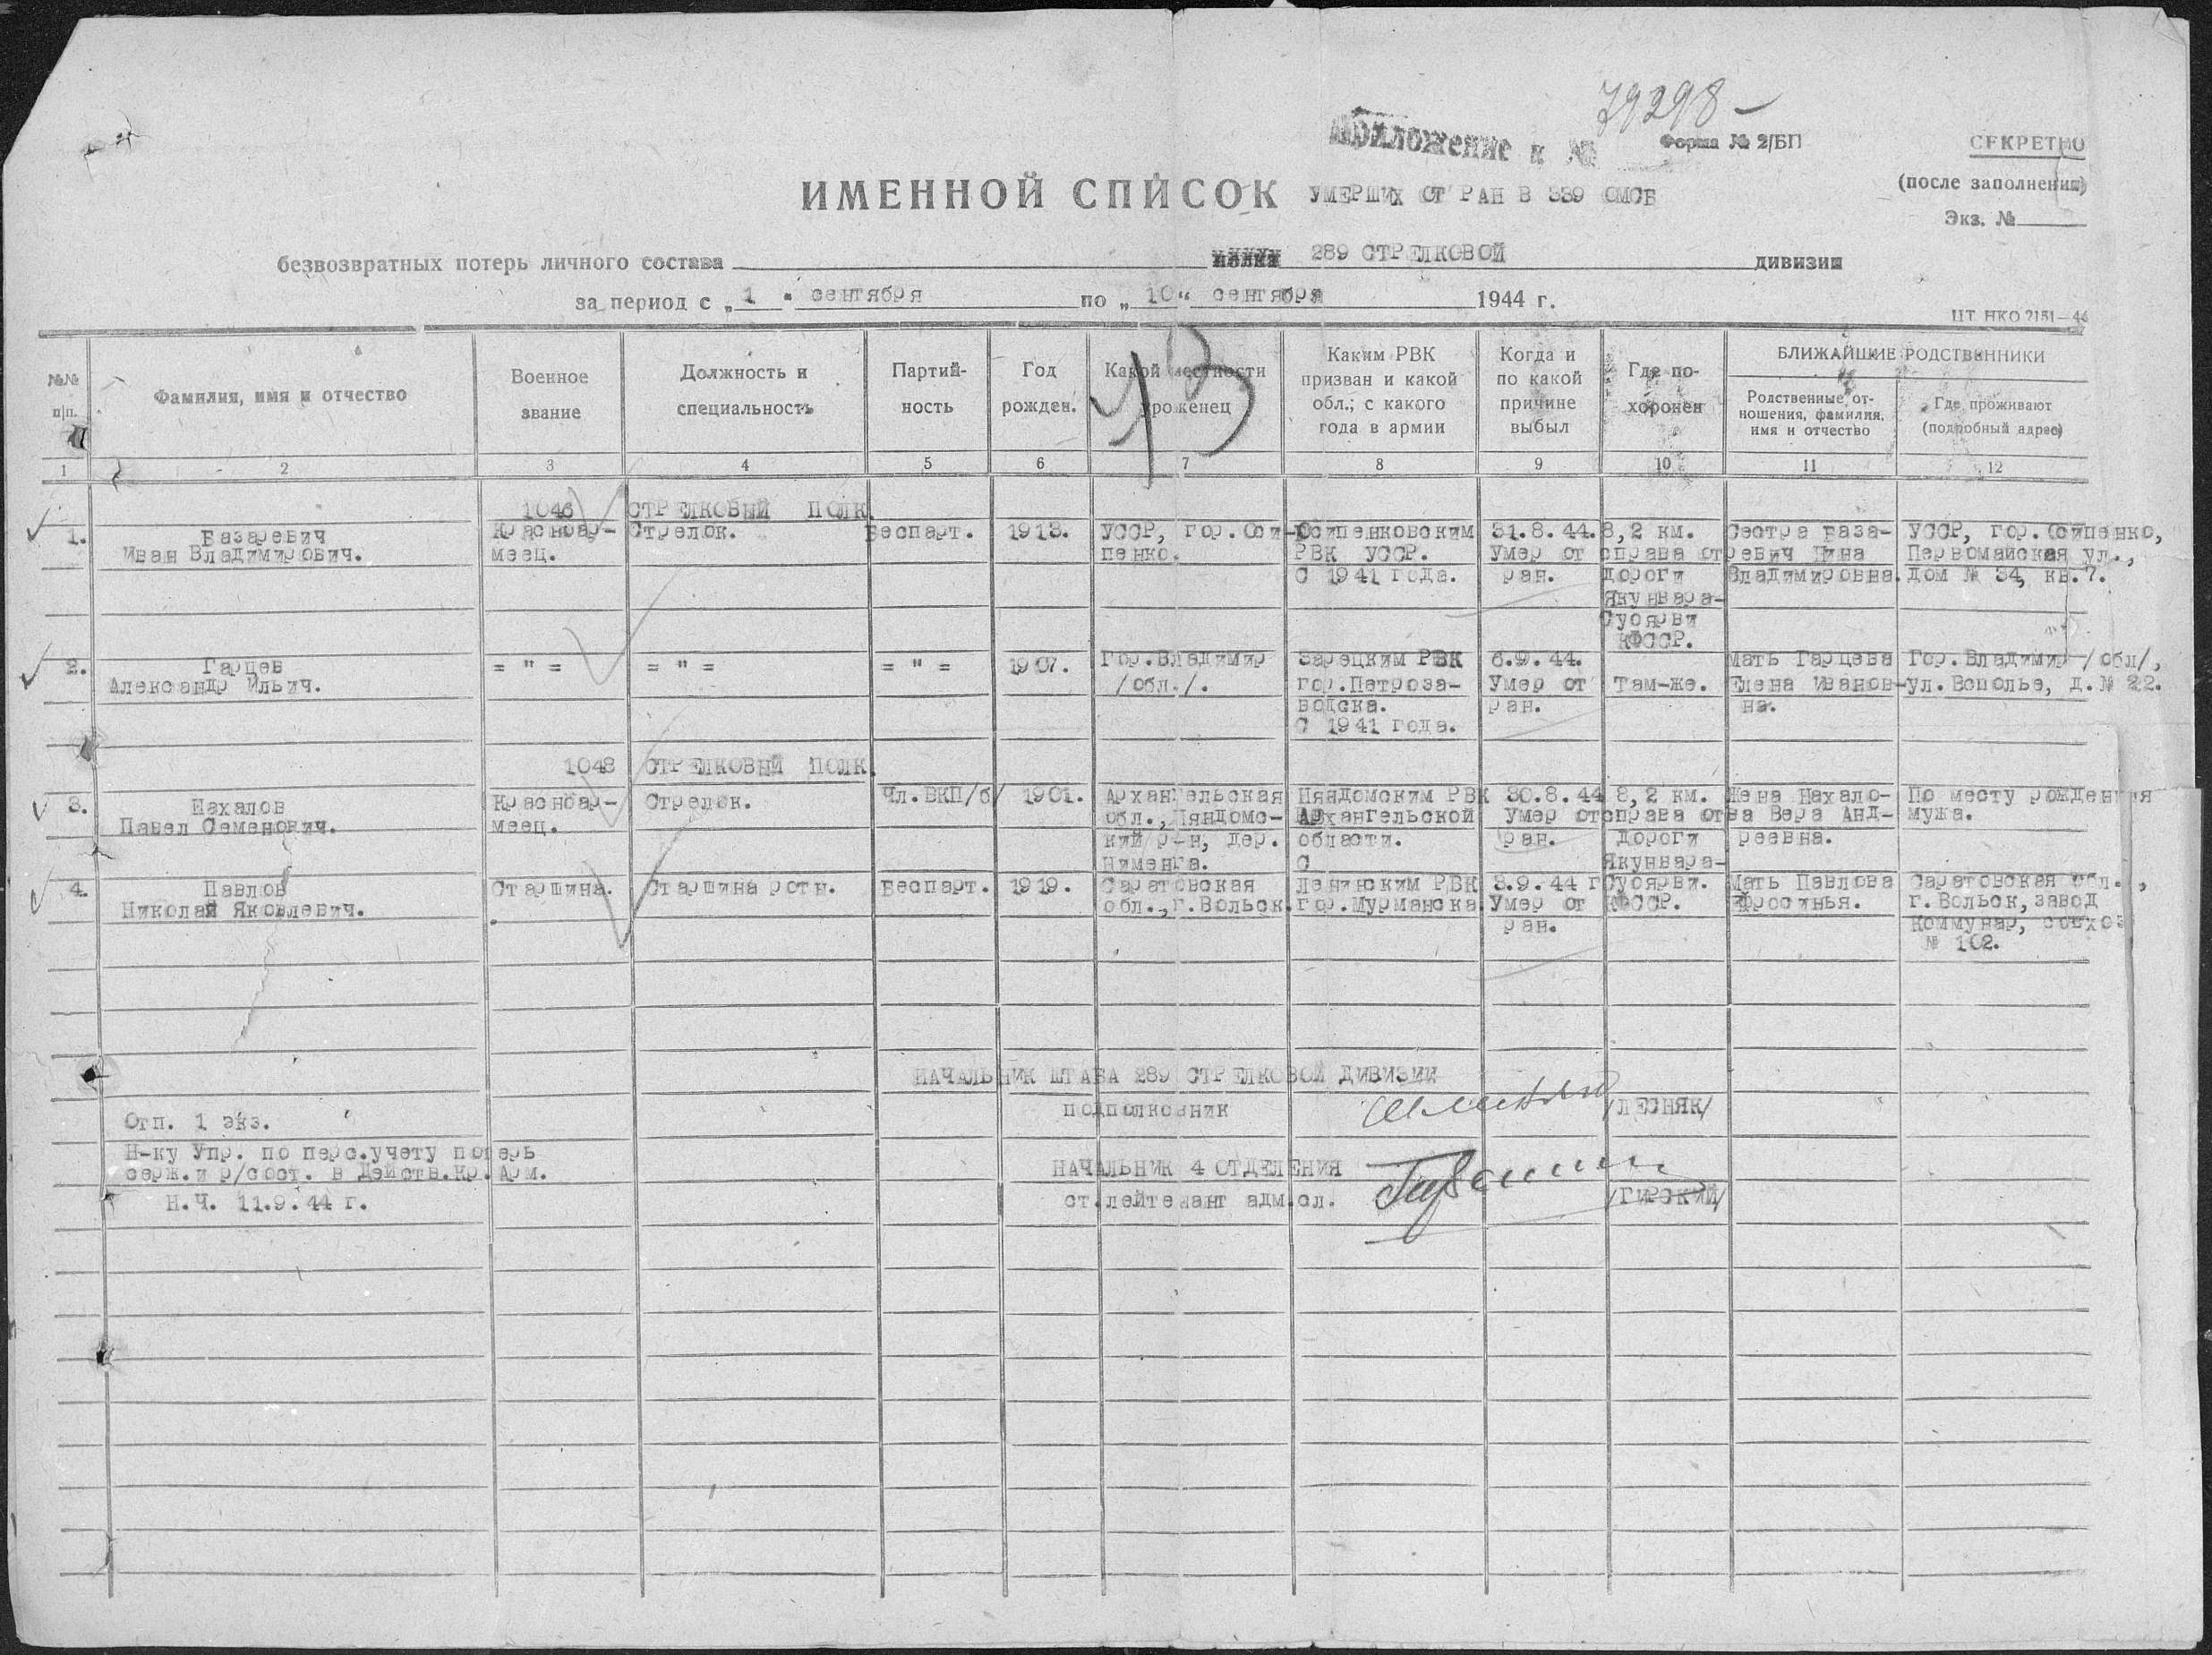 79298 –
Приложение к №
Форма № 2/БП
СЕКРЕТНО
(после заполнения)
Экз. №
ИМЕННОЙ СПИСОК УМЕРШИХ ОТ РАН В 339 ОМСБ
безвозвратных потерь личного состава 289 СТРЕЛКОВОЙ дивизии
за период с „1" сентября по „10" сентября 1944 г.
ЦТ НКО 2151—44
№№ п/п.
Фамилия, имя и отчество
Военное звание
Должность и специальность
Партий-
ность
Год рожден.
Какой местности уроженец
Каким РВК
призван и какой
обл.; с какого
года в армии
Когда и
по какой
причине
выбыл
Где по-
хоронен
БЛИЖАЙШИЕ РОДСТВЕННИКИ
Родственные от-
ношения, фамилия,
имя и отчество
Где проживают
(подробный адрес)
1 2 3 4 5 6 7 8 9 10 11 12
1046 СТРЕЛКОВЫЙ ПОЛК.
1.
Базаревич
Иван Владимирович.
Красноар-
меец.
Стрелок.
Беспарт.
1913.
УССР, гор. Оси-
пенко.
Осипенковским
РВК УССР.
С 1941 года.
31.8.44.
Умер от
ран.
8,2 км.
справа от
дороги
Якунвара-
Суоярви
КФССР.
Сестра База-
ревич Нина
Владимировна.
УССР, гор. Осипенко,
Первомайская ул.,
дом № 34, кв. 7.
2.
Гарцев
Александр Ильич.
= " =
= " =
= " =
1907.
Гор. Владимир
/обл./.
Зарецким РВК
гор. Петроза-
водска.
С 1941 года.
6.9.44.
Умер от
ран.
Там-же.
Мать Гарцева
Елена Иванов-
на.
Гор. Владимир /обл/,
ул. Всполье, д. № 22.
1048 СТРЕЛКОВЫЙ ПОЛК.
3.
Нахалов
Павел Семенович.
Красноар-
меец.
Стрелок.
Чл. ВКП/б/
1901.
Архангельская
обл., Няндомс-
кий р-н, дер.
Нименга.
Няндомским РВК
Архангельской
области.
С
30.8.44
Умер от
ран.
8,2 км.
справа от
дороги
Якунвара-
Суоярви.
КФССР.
Жена Нахало-
ва Вера Анд-
реевна.
По месту рождения
мужа.
4.
Павлов
Николай Яковлевич.
Старшина.
Старшина роты.
Беспарт.
1919.
Саратовская
обл., г. Вольск.
Ленинским РВК
гор. Мурманска
3.9.44 г
Умер от
ран.
Мать Павлова
Ефросинья.
Саратовская обл.,
г. Вольск, завод
Коммунар, совхоз
№ 102.
НАЧАЛЬНИК ШТАБА 289 СТРЕЛКОВОЙ ДИВИЗИИ
подполковник /ЛЕСНЯК/
Отп. 1 экз.
Н-ку Упр. по перс. учету потерь
серж. и р/сост. в Действ. Кр. Арм.
Н.Ч. 11.9.44 г.
НАЧАЛЬНИК 4 ОТДЕЛЕНИЯ
ст. лейтенант адм. сл. /ГИРСКИЙ/